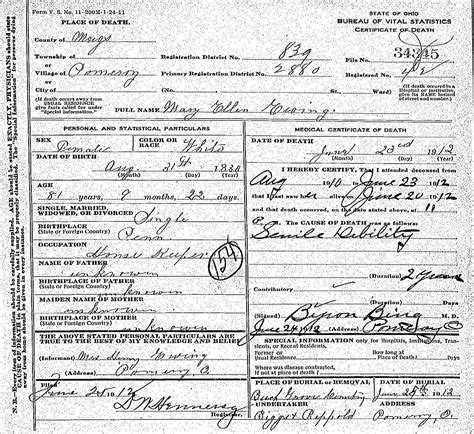 Form V. S. No. 11-200M-1-24-11
PLACE OF DEATH.
STATE OF OHIO
BUREAU OF VITAL STATISTICS
CERTIFICATE OF DEATH
County of Meigs
Township of
or
Village of Pomeroy
or
City of
Registration District No. 839
Primary Registration District No. 2880
File No. 34345
Registered No.
(If death occurs away from USUAL RESIDENCE give facts called for under "Special Information.")
(If death occurred in a Hospital or Institution, give its NAME instead of street and number.)
FULL NAME Mary Ellen Ewing
PERSONAL AND STATISTICAL PARTICULARS
SEX Female
COLOR OR RACE White
DATE OF BIRTH
Aug 31st 1830
(Month) (Day) (Year)
AGE
81 years, 9 months, 22 days
SINGLE, MARRIED, WIDOWED, OR DIVORCED Single
BIRTHPLACE
(State or Foreign Country) Penn
OCCUPATION
House Keeper
NAME OF FATHER
unknown
BIRTHPLACE OF FATHER
(State or Foreign Country) unknown
MAIDEN NAME OF MOTHER
unknown
BIRTHPLACE OF MOTHER
(State or Foreign Country) unknown
THE ABOVE STATED PERSONAL PARTICULARS ARE TRUE TO THE BEST OF MY KNOWLEDGE AND BELIEF
(Informant) Mrs Henry Ewing
(Address) Pomeroy, O.
Filed June 24 1912
Registrar
154
MEDICAL CERTIFICATE OF DEATH
DATE OF DEATH
June 23rd 1912
(Month) (Day) (Year)
I HEREBY CERTIFY, That I attended deceased
from Aug 1910 to June 23 1912
that I last saw her alive on June 20 1912
and that death occurred, on the date stated above, at 11
The CAUSE OF DEATH was as follows:
Senile Debility
(Duration) 2 Years
Contributory
(Duration)
(Signed) Byron Bing M. D.
June 24 1912 (Address) Pomeroy O
SPECIAL INFORMATION only for Hospitals, Institutions, Transients, or Recent Residents.
Former or Usual Residence
How long at Place of Death? Days
Where was disease contracted, If not at place of death?
PLACE OF BURIAL or REMOVAL
Beech Grove Cemetery
DATE OF BURIAL
June 25th 1912
UNDERTAKER
(Address)
Pomeroy, O.